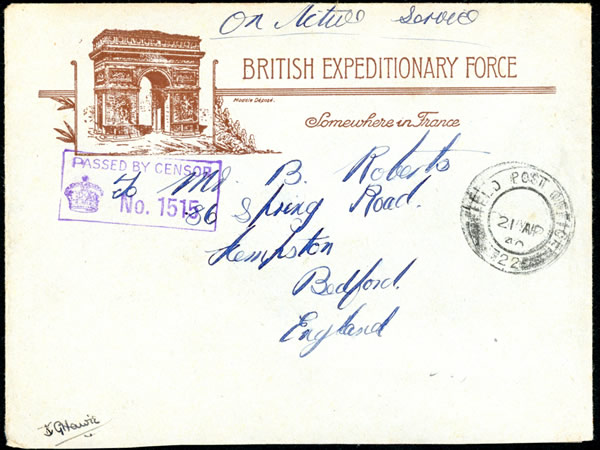 On Active Service
BRITISH EXPEDITIONARY FORCE
Somewhere in France
PASSED BY CENSOR
No. 1515
to Mr. B. Roberts
86 Spring Road.
Kempston
Bedford.
England
FIELD POST OFFICE
21 AP
40